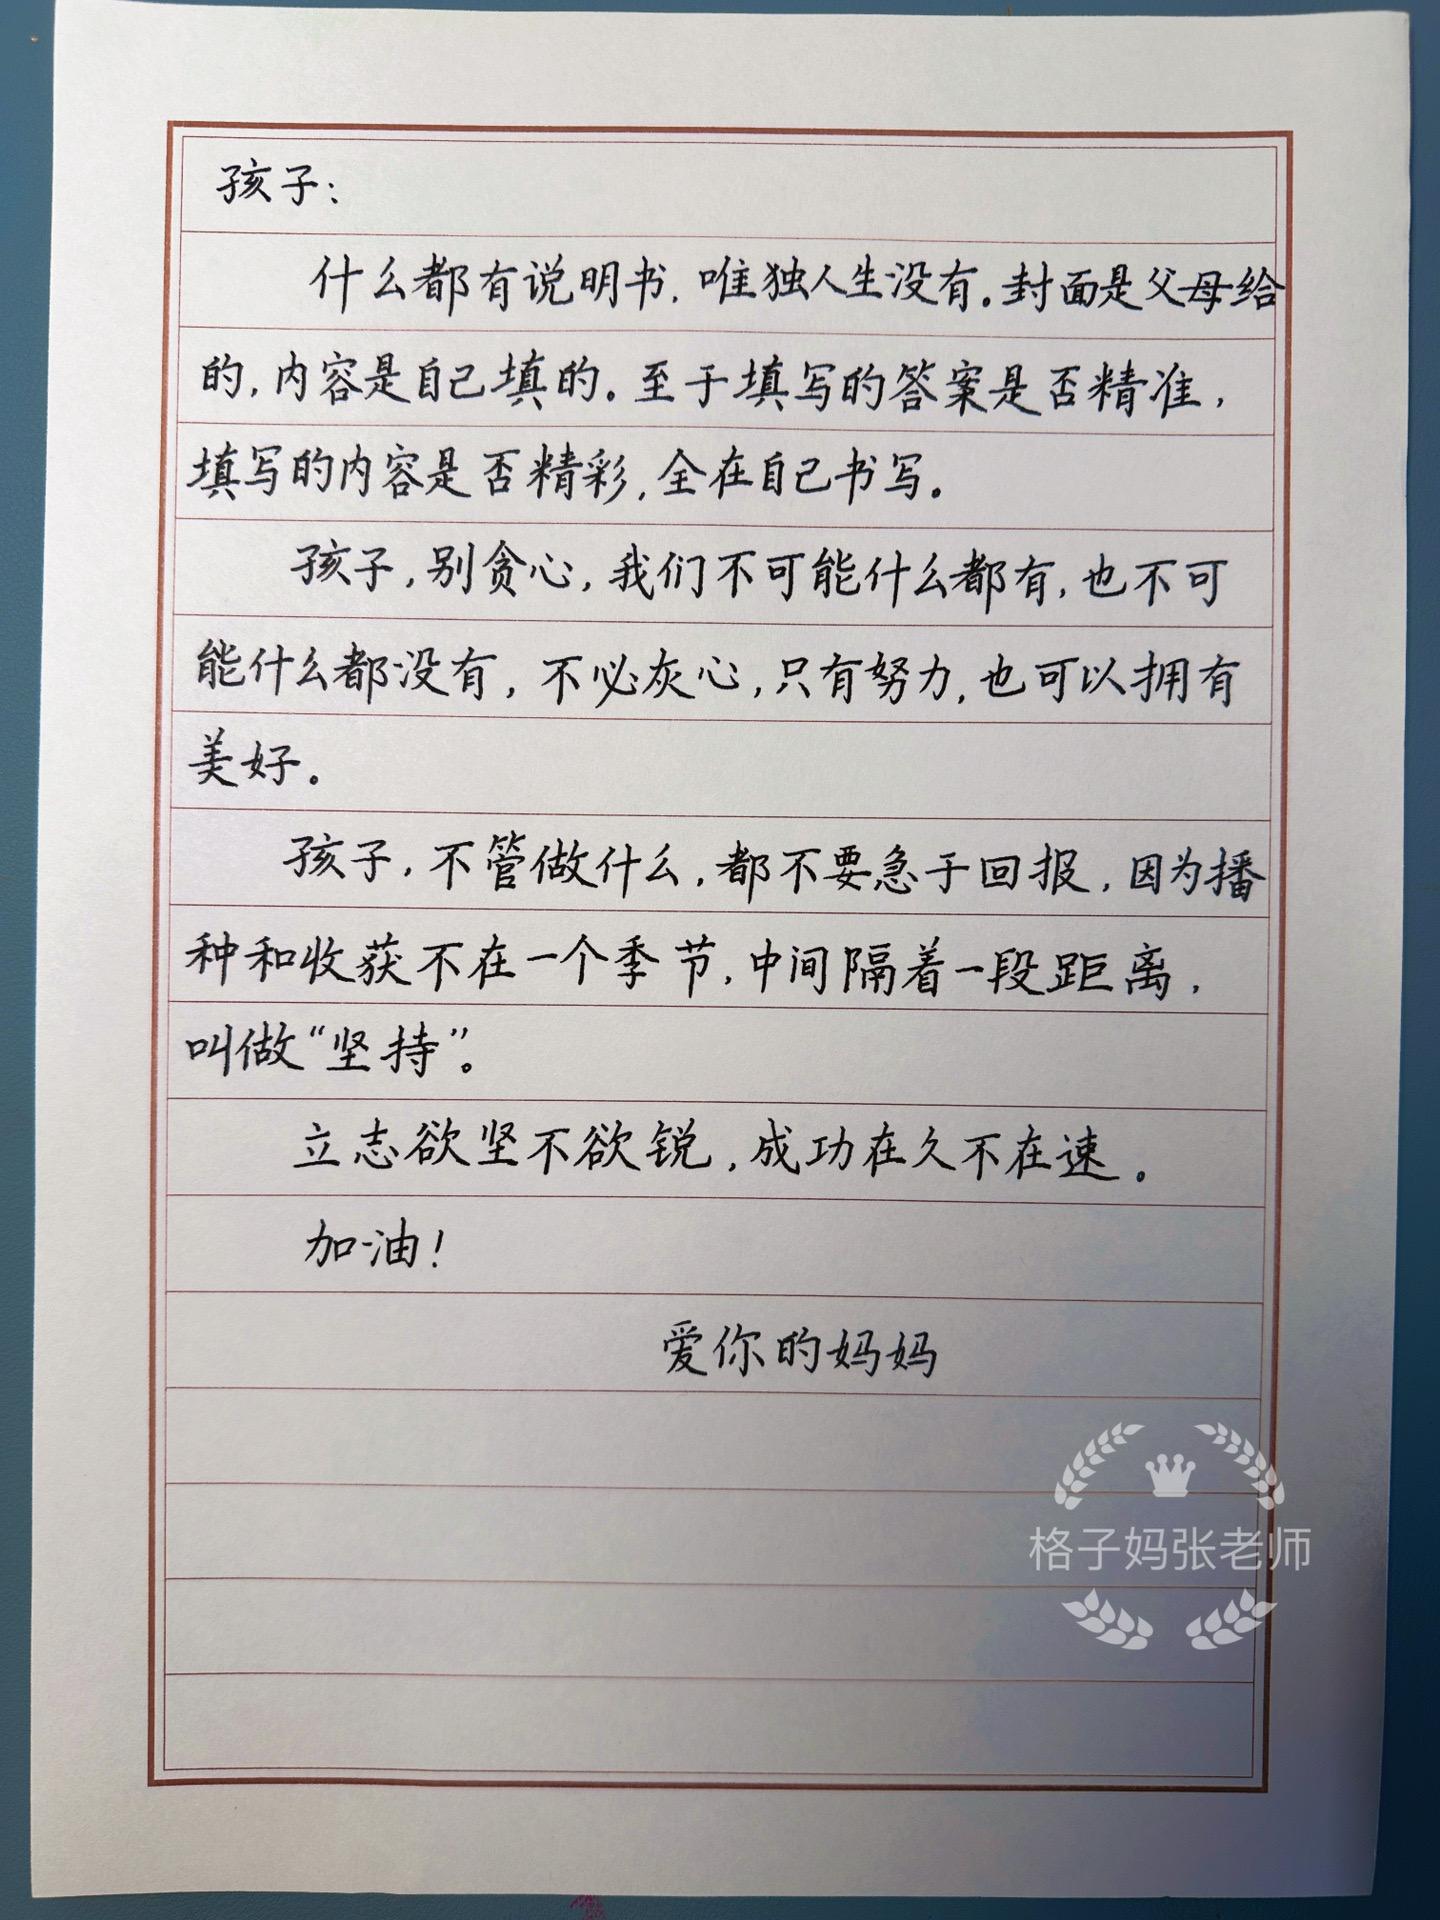 孩子：
什么都有说明书，唯独人生没有。封面是父母给
的，内容是自己填的。至于填写的答案是否精准，
填写的内容是否精彩，全在自己书写。
孩子，别贪心，我们不可能什么都有，也不可
能什么都没有，不必灰心，只有努力，也可以拥有
美好。
孩子，不管做什么，都不要急于回报，因为播
种和收获不在一个季节，中间隔着一段距离，
叫做“坚持”。
立志欲坚不欲锐，成功在久不在速。
加油！
爱你的妈妈
格子妈张老师